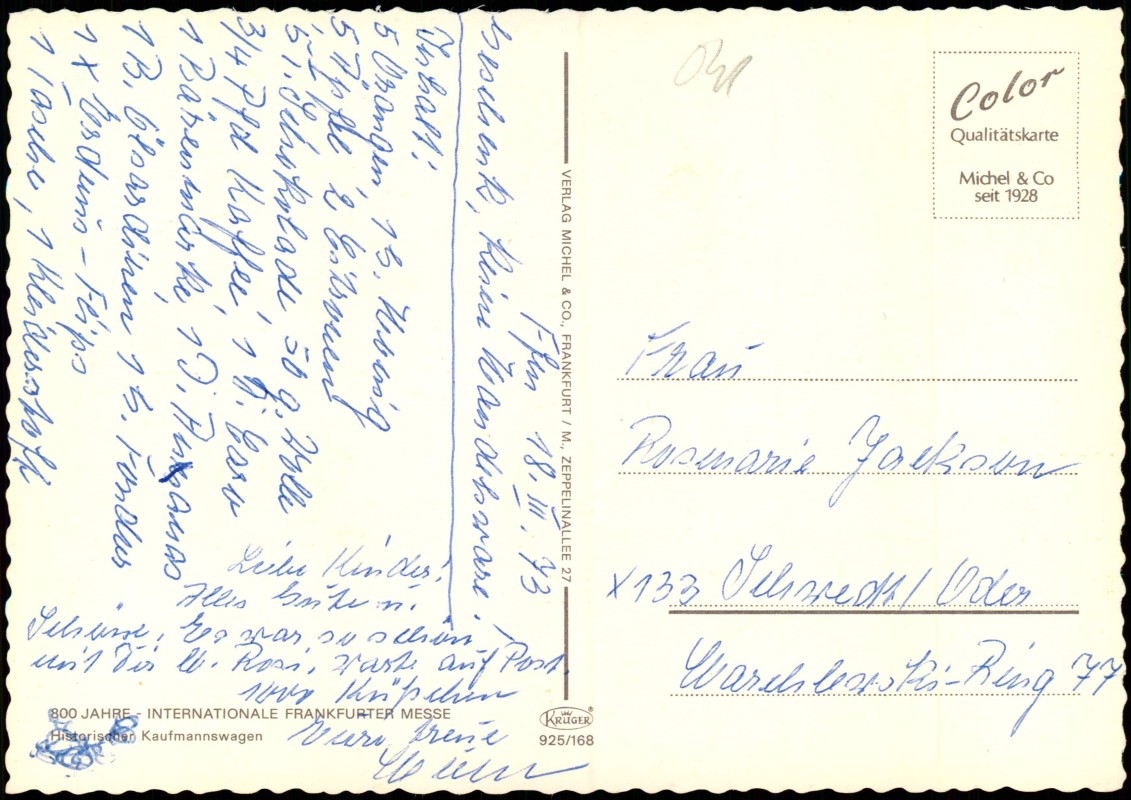 Geschenk, keine Handelsware!
Ffm 18. III. 73
Inhalt:
5 Orangen, 1 b. Honig
5 Äpfel 2 Citronen
5 T. Schokolade, 50 g. Wolle
3/4 Pfd Kaffee, 1
1 Bärenmarke, 1 D. Ananas
1 B. Ölsardinen 1
1 x Erdnuß-Flips
1 Tasche, 1 Kleiderstoff
Liebe Kinder!
Alles Gute u.
Schöne. Es war so schön
mit Dir lb. Rosi. warte auf Post.
1000 Küßchen
Eure
800 JAHRE - INTERNATIONALE FRANKFURTER MESSE
Historischer Kaufmannswagen
VERLAG MICHEL & CO., FRANKFURT / M., ZEPPELINALLEE 27
KRÜGER®
925/168
Color
Qualitätskarte
Michel & Co
seit 1928
Frau
Rosmarie Jackson
X133 Schwedt/Oder
Marchlewski-Ring 77